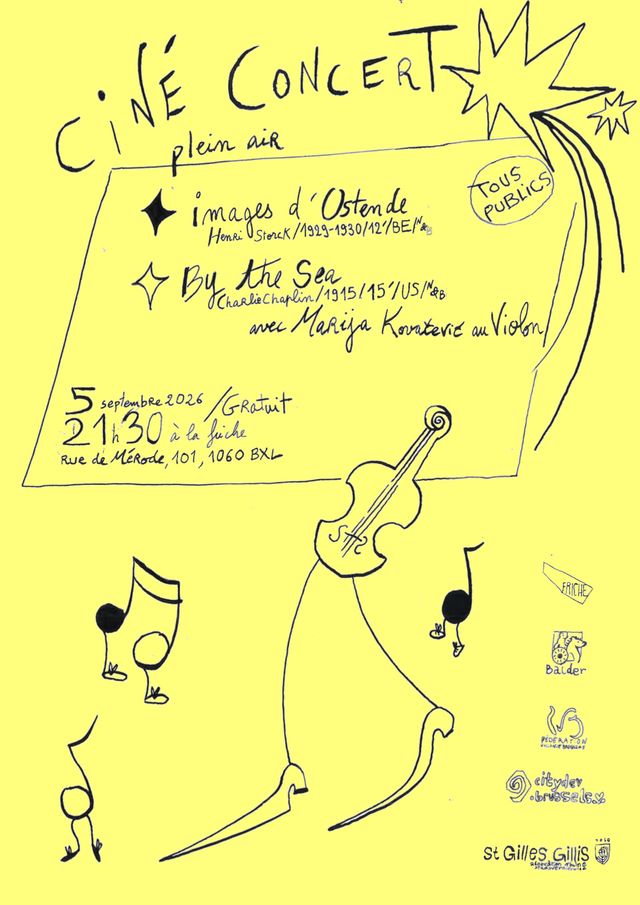 CiNÉ CONCERT
plein aiR
TOUS PUBLICS
images d'Ostende
HENRi StorcK/1929-1930/12'/BE/N&B
By the Sea
CHARLie Chaplin/1915/15'/US/N&B
avec Marija Kovačević au Violon
5 septembre 2026 /GRatuit
21h30 à la friche
Rue de MéRode, 101, 1060 BXL
FRICHE
Balder
FÉDÉRATION
citydev
.brussels
St Gilles Gillis
1060